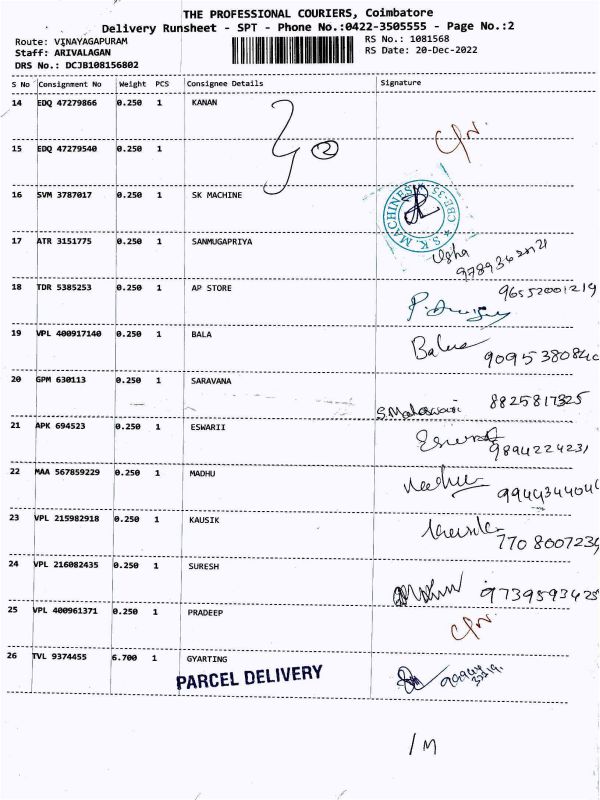 THE PROFESSIONAL COURIERS, Coimbatore
Delivery Runsheet - SPT - Phone No.:0422-3505555 - Page No.:2
Route: VINAYAGAPURAM
RS No.: 1081568
Staff: ARIVALAGAN
RS Date: 20-Dec-2022
DRS No.: DCJB108156802
S No Consignment No Weight PCS Consignee Details Signature
14 EDQ 47279866 0.250 1 KANAN
2
15 EDQ 47279540 0.250 1
16 SVM 3787017 0.250 1 SK MACHINE
S.K. MACHINES CBE-35
17 ATR 3151775 0.250 1 SANMUGAPRIYA
Usha
18 TDR 5385253 0.250 1 AP STORE
96552001219
19 VPL 400917140 0.250 1 BALA
Bala 909538084
20 GPM 630113 0.250 1 SARAVANA
S.Maheswari 8825817325
21 APK 694523 0.250 1 ESWARII
9894224231
22 MAA 567859229 0.250 1 MADHU
Madhu 994434404
23 VPL 215982918 0.250 1 KAUSIK
Kausik 7708007239
24 VPL 216082435 0.250 1 SURESH
9739593425
25 VPL 400961371 0.250 1 PRADEEP
26 TVL 9374455 6.700 1 GYARTING
PARCEL DELIVERY
/M